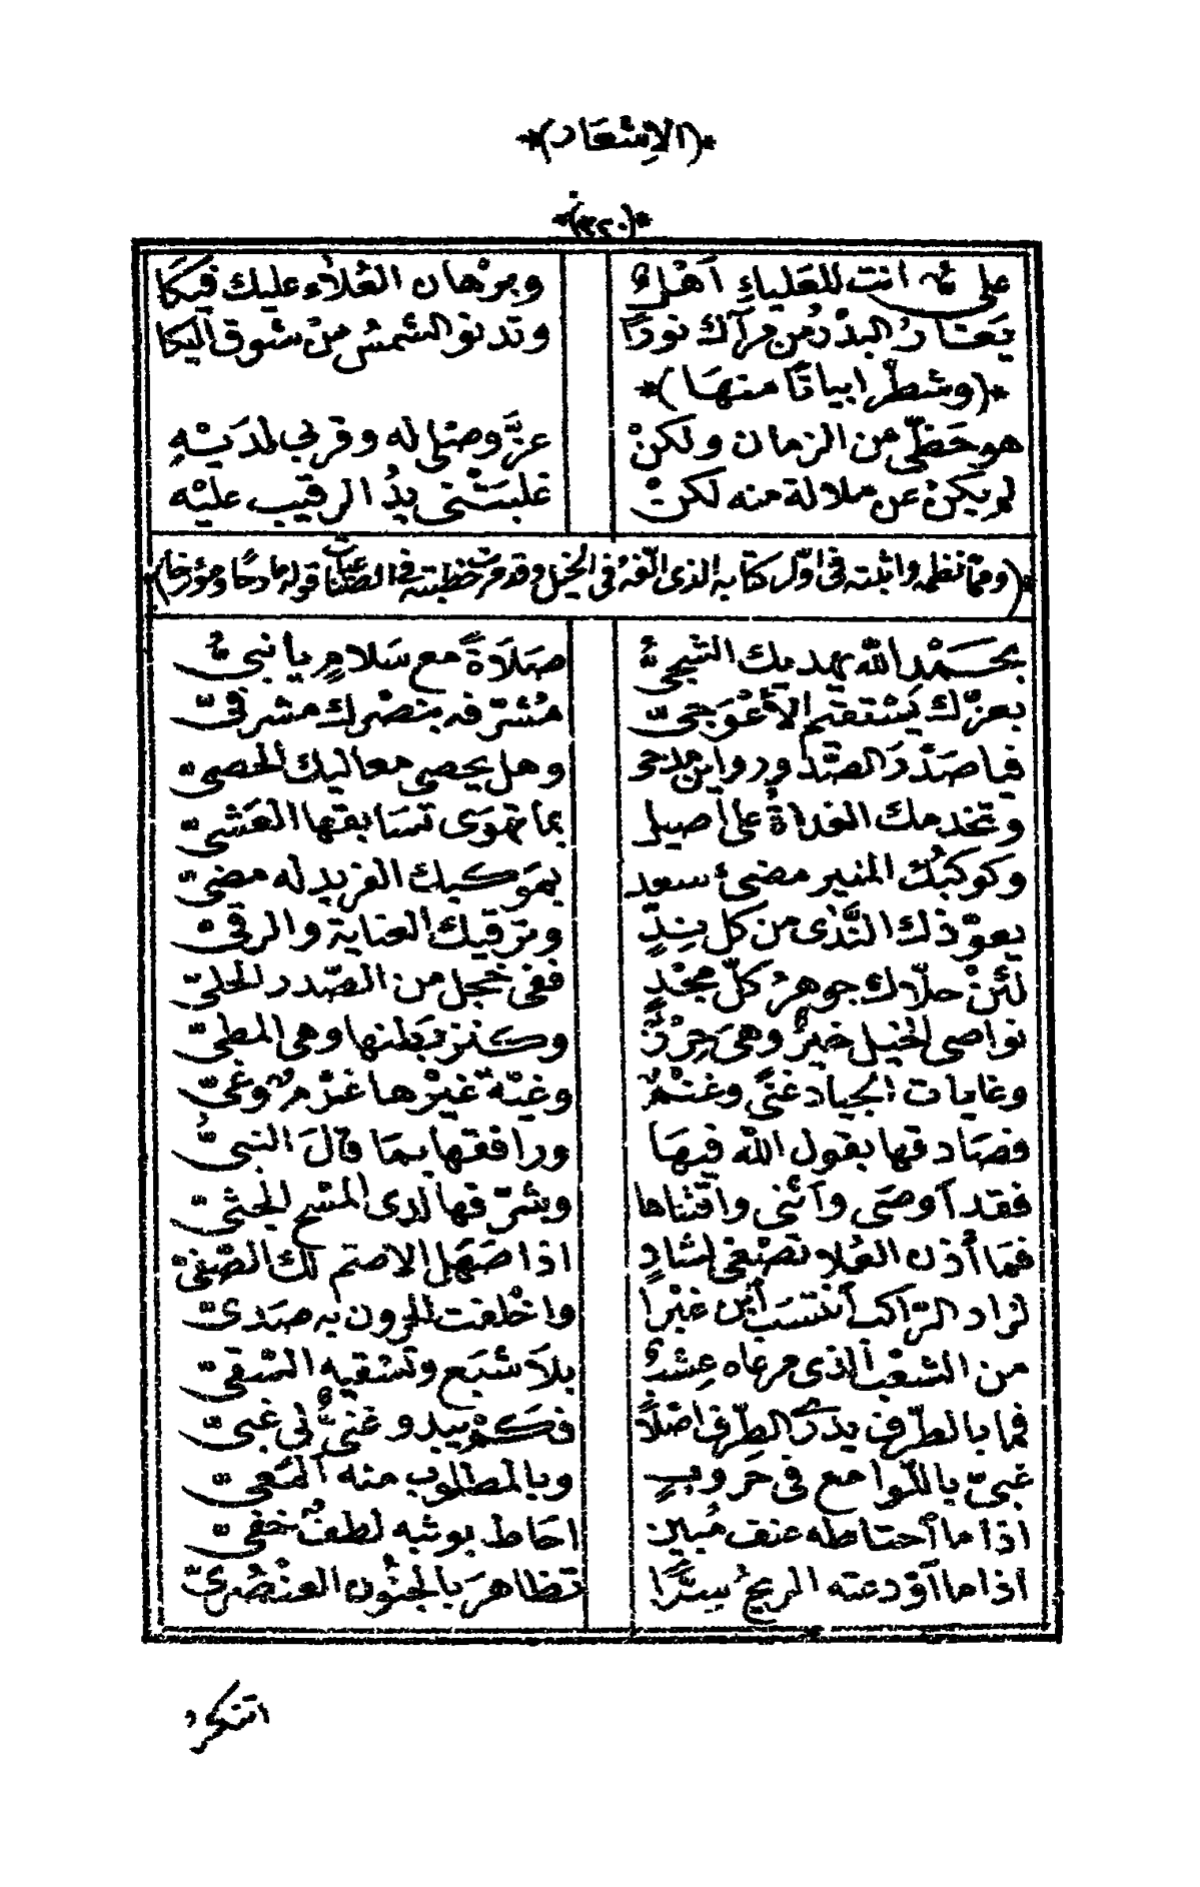 *(الاشعار)*
*(٣٢٠)*
علىٌّ انت للعلياءِ اَهْلٌ وبرْهان العُلاَء عليك فيكَا
يَحتارُ البدْرُ من مرآك نورًا وتدنو الشمسُ منْ شوق اليكا
*(وشطّر ابياتًا منهَا)*
هو حَظّى من الزمان ولكنْ عزَّ وصلى له وقربى لدَيْهِ
لم يكنْ عن ملالة منه لكنْ غلبَتْنى يدُ الرقيب عليْه
(ومما نظمه واثبته فى اوّل كتابه الذى الّفهُ فى الخيل وقد مرت خطبته فى الصناعات قوله مادحًا ومؤرخا)
بحَمْدِ الله يهديك الشجىُّ صَلَاةً مع سَلامٍ يا نبىُّ
بعزّك يَسْتقيم الأعْوَجىّ مُشرّفه بنصْرك مشرفىّ
فيا صَدْرَ الصّدور وابن وهل يحصى معاليك الحصىّ
وتخدمك الغداةُ على اصيل بما تهوَى تسَابقها العَشىّ
وكوكبُك المنير مضىئ سعد بموكبك الفريد له مضىّ
يعوّذك النَّدَى من كل نِدٍّ وترقيك العناية والرقىّ
لئنْ حلّاك جوهرُ كلّ مجْدٍ ففى خجل من الصّدر الحلىّ
نواصى الخيل خيرٌ وهىَ حِرْزٌ وكنز تبطنها وهى المطىّ
وغايات الجياد غنًى وغنْمٌ وغيّة غيْرها غرْمٌ وغىّ
فصَادقها بقول الله فيهَا ورافقها بمَا قالَ النبىُّ
فقد اَوصَى واَثنى واقتناها وشرّفها لدى المسْح الجثىّ
فمَا أذن العُلا تصْغى لشادٍ اذا صَهَل الاصم لك الصّفىّ
لزاد الرّاكب اَنتسَب أبن غبْرا واخْلفت الحرون به صَدىّ
من الشعْب الذى مرعاه عِشْبٌ بلاَ شبَع وتسْقيه السّقىّ
فما بالطرْف يدرَك الطِرْف اصْلًا فكمْ يبدو غنىٌّ لى غبىّ
غبىّ باللّوامع فى حَروبٍ وبالمطلوب منه اَلمعىّ
اذا ما اَحتاطه عنف مُبين احَاط بوثبه لطفٌ خفىّ
اذا ما اَوْدعته الريحُ سِرًّا تظاهرَ بالجنُون العنْصُرىّ